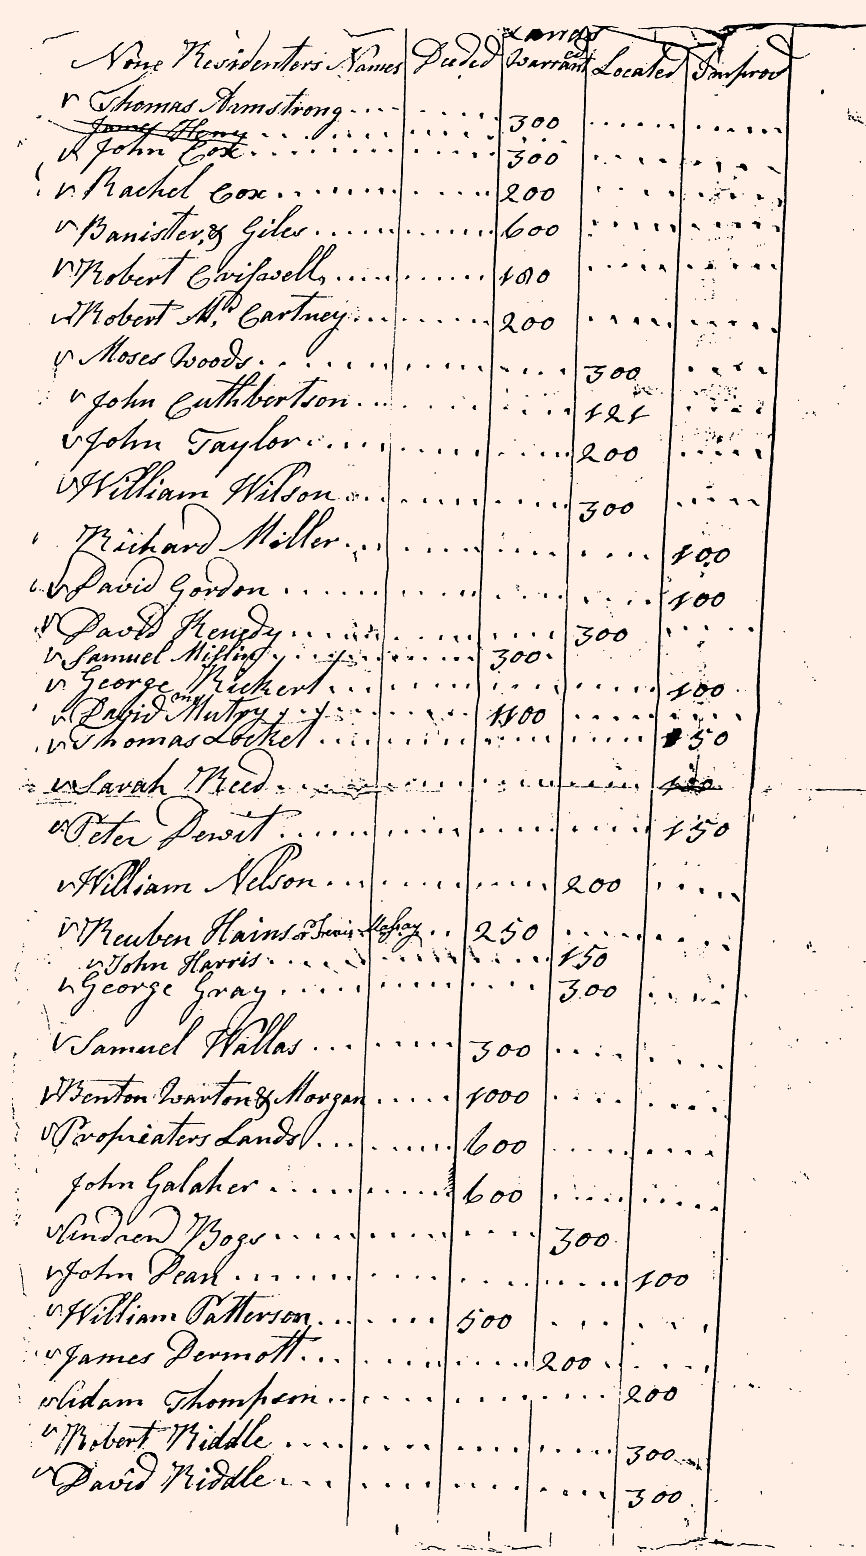 Lands
None Residenters Names Deeded Warranted Located Improvd
v Thomas Armstrong 300
James Henry
v John Cox 300
v Rachel Cox 200
v Banister & Giles 600
v Robert Criswell 180
v Robert Mc Cartney 200
v Moses Woods 300
v John Cuthbertson 121
v John Taylor 200
v William Wilson 300
Richard Miller 100
v David Gordon 100
v David Kenedy 300
v Samuel Mifflin 300
v George Rickert 100
v David McMutry 1100
v Thomas Locket 150
v Sarah Reed 100
v Peter Dewit 150
v William Nelson 200
v Reuben Hains or 250
v John Harris 150
v George Gray 300
v Samuel Wallas 300
v Benton Warton & Morgan 1000
v Propriaters Lands 600
John Galaher 600
v Andrew Bogs 300
v John Dean 100
v William Patterson 500
v James Dermott 200
v Adam Thompson 200
v Robert Riddle 300
v David Riddle 300